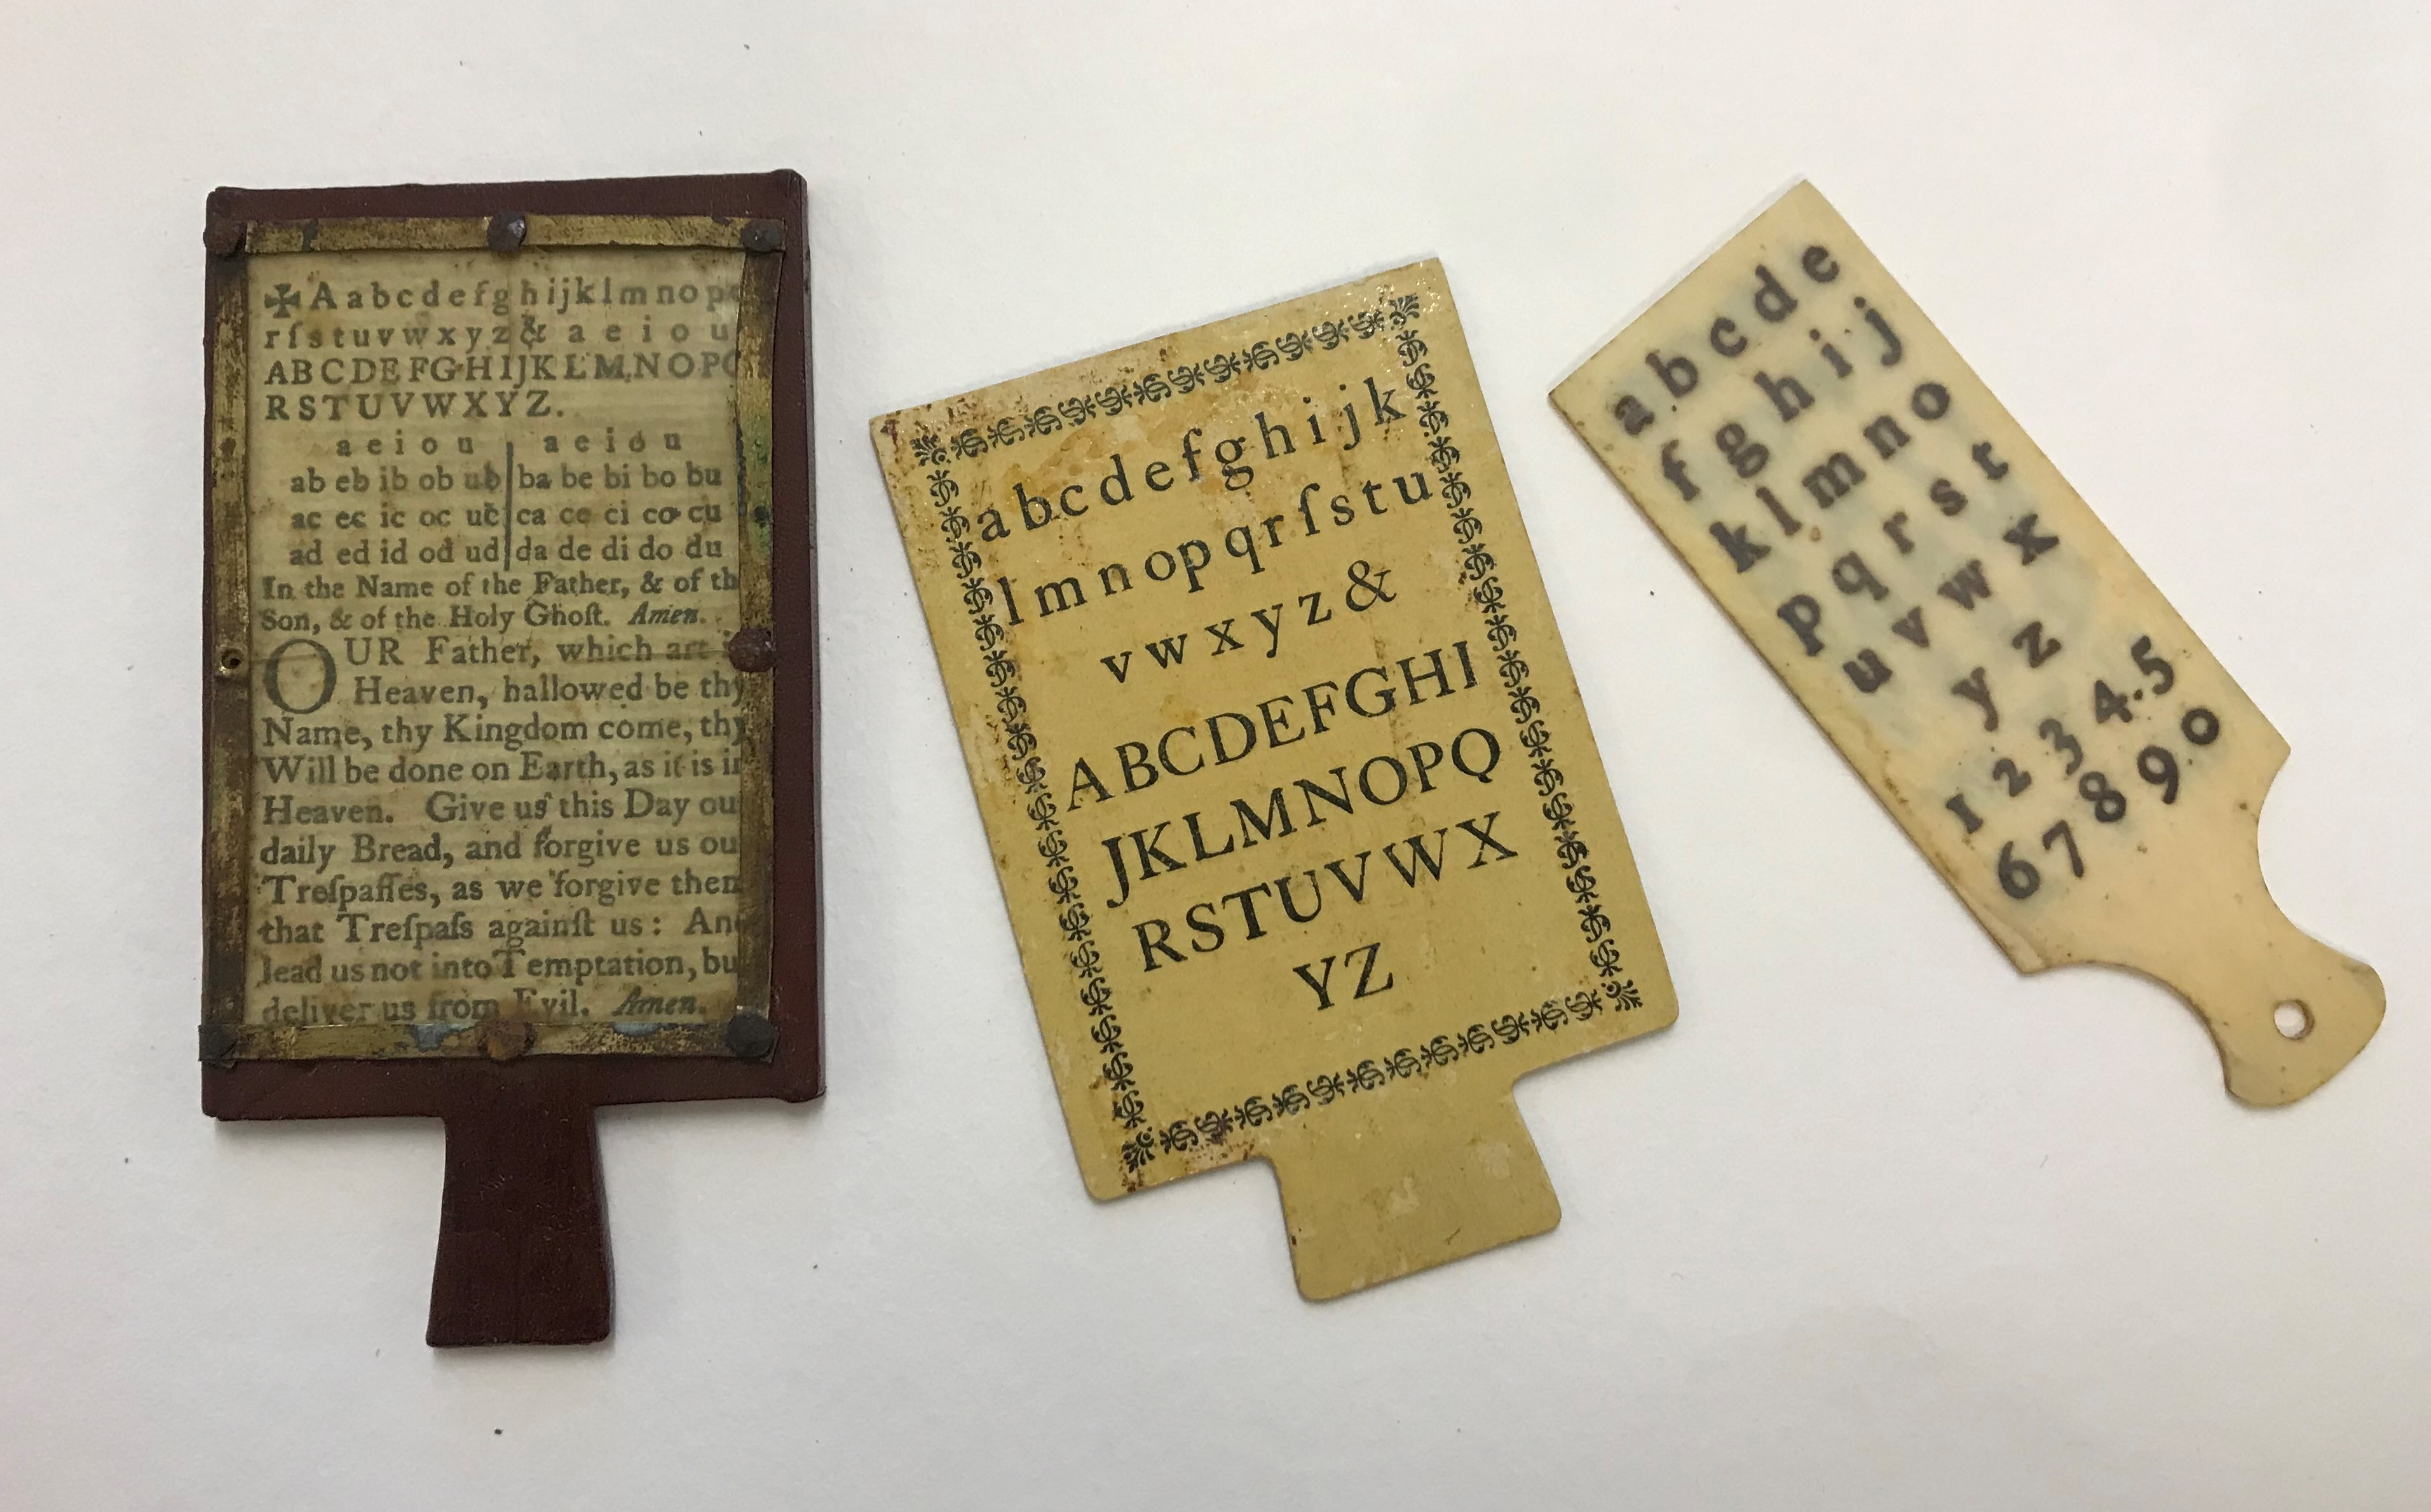 ✠ A a b c d e f g h i j k l m n o p
r ſ s t u v w x y z & a e i o u
A B C D E F G H I J K L M N O P Q
R S T U V W X Y Z.
a e i o u | a e i o u
ab eb ib ob ub | ba be bi bo bu
ac ec ic oc uc | ca ce ci co cu
ad ed id od ud | da de di do du
In the Name of the Father, & of th
Son, & of the Holy Ghoſt. Amen.
OUR Father, which art i
Heaven, hallowed be thy
Name, thy Kingdom come, thy
Will be done on Earth, as it is in
Heaven. Give us this Day ou
daily Bread, and forgive us ou
Treſpaſſes, as we forgive them
that Treſpaſs againſt us: And
lead us not into Temptation, bu
deliver us from Evil. Amen.
a b c d e f g h i j k
l m n o p q r ſ s t u
v w x y z &
A B C D E F G H I
J K L M N O P Q
R S T U V W X
Y Z
a b c d e
f g h i j
k l m n o
p q r s t
u v w x
y z
1 2 3 4.5
6 7 8 9.0